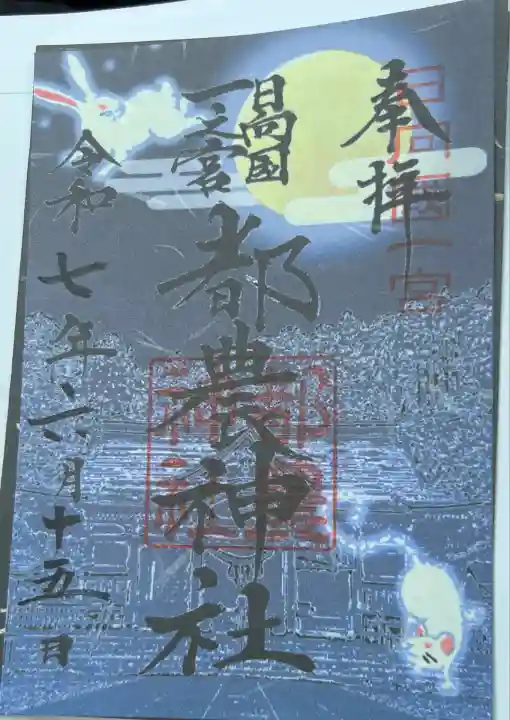 奉拝
日向國一宮
日向国
一之宮
都農神社
都農
神社
令和七年六月十五日